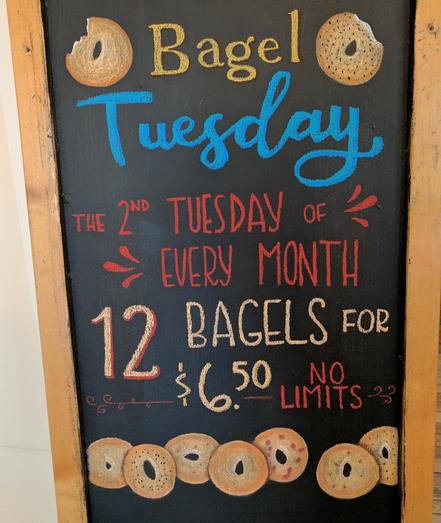 Bagel
Tuesday
THE 2ND TUESDAY OF
EVERY MONTH
12 BAGELS FOR
$6.50 NO LIMITS